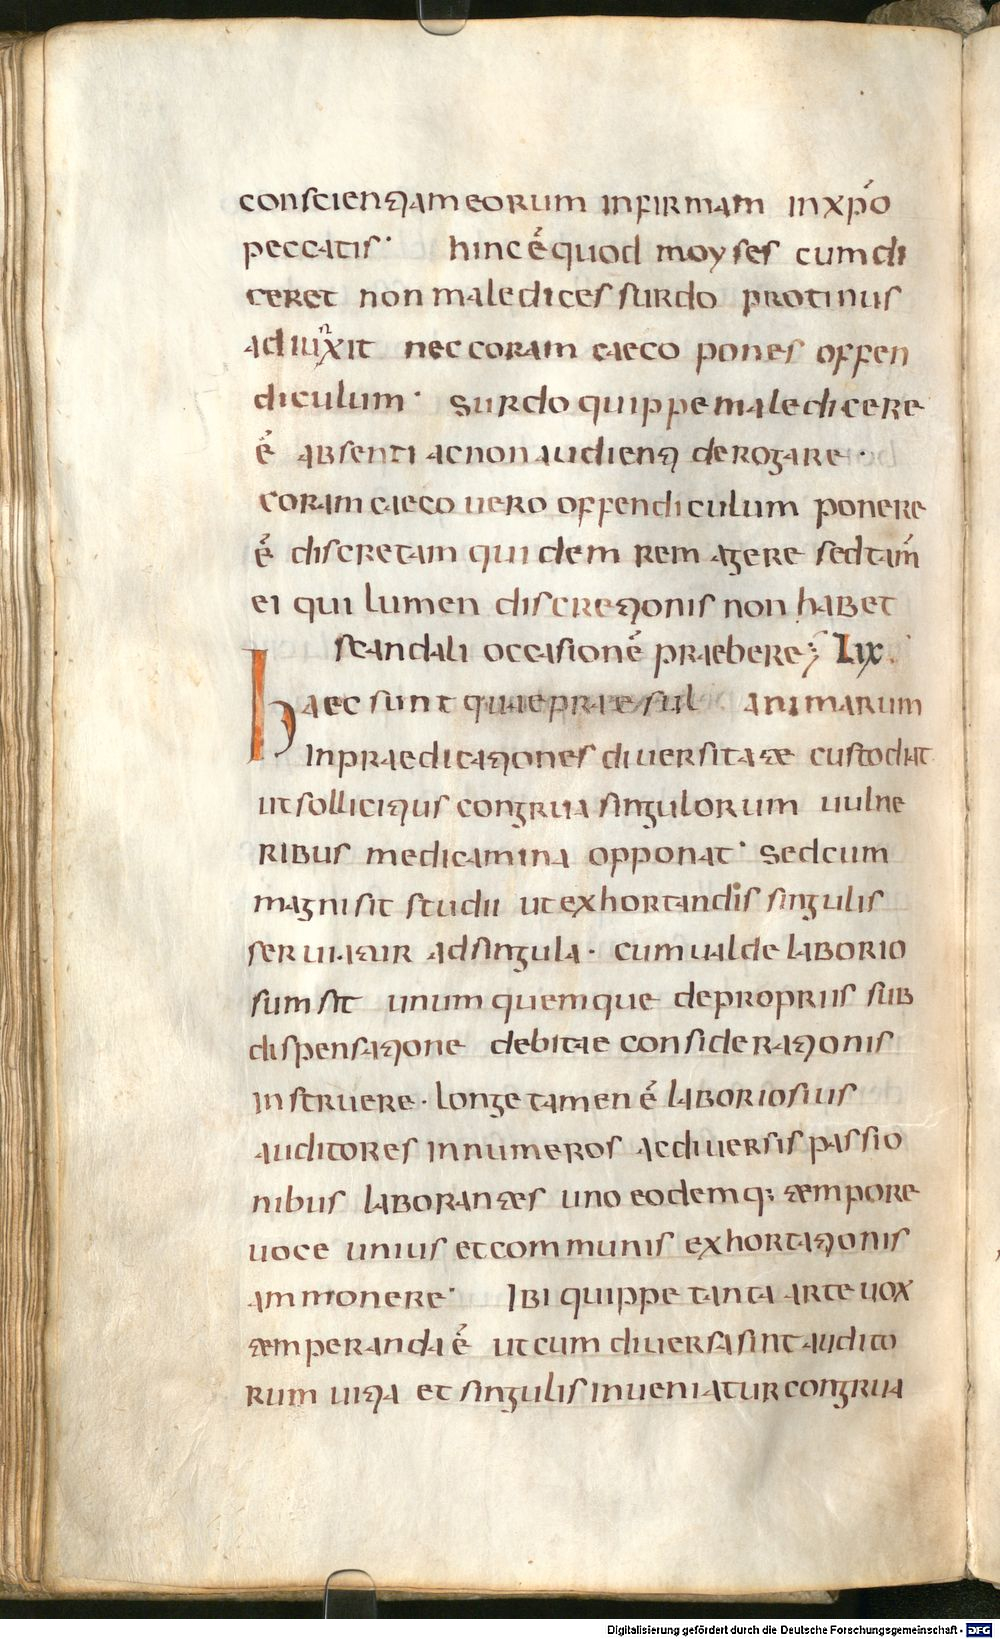 conscientiam eorum infirmam in xpo
peccatis · hinc ē quod moyses cum di
ceret non maledices surdo protinus
adiunxit nec coram caeco pones offen
diculum · surdo quippe maledicere
ē absenti ac non audienti derogare ·
coram caeco uero offendiculum ponere
ē discretam quidem rem agere sed tam̄
ei qui lumen discretionis non habet
scandali occasionē praebere ; Lix ·
haec sunt quae praesul animarum
in praedicationes diuersitate custodiat
ut sollicitius congrua singulorum uulne
ribus medicamina opponat · sed cum
magni sit studii ut exhortandis singulis
seruiatur ad singula · cum ualde laborio
sum sit unumquemque de propriis sub
dispensatione debitae considerationis
instruere · longe tamen ē laboriosius
auditores innumeros ac diuersis passio
nibus laborantes uno eodemq; tempore
uoce unius et communis exhortationis
ammonere · Ibi quippe tanta arte uox
temperanda ē ut cum diuersa sint audito
rum uitia et singulis inueniatur congrua
Digitalisierung gefördert durch die Deutsche Forschungsgemeinschaft - DFG